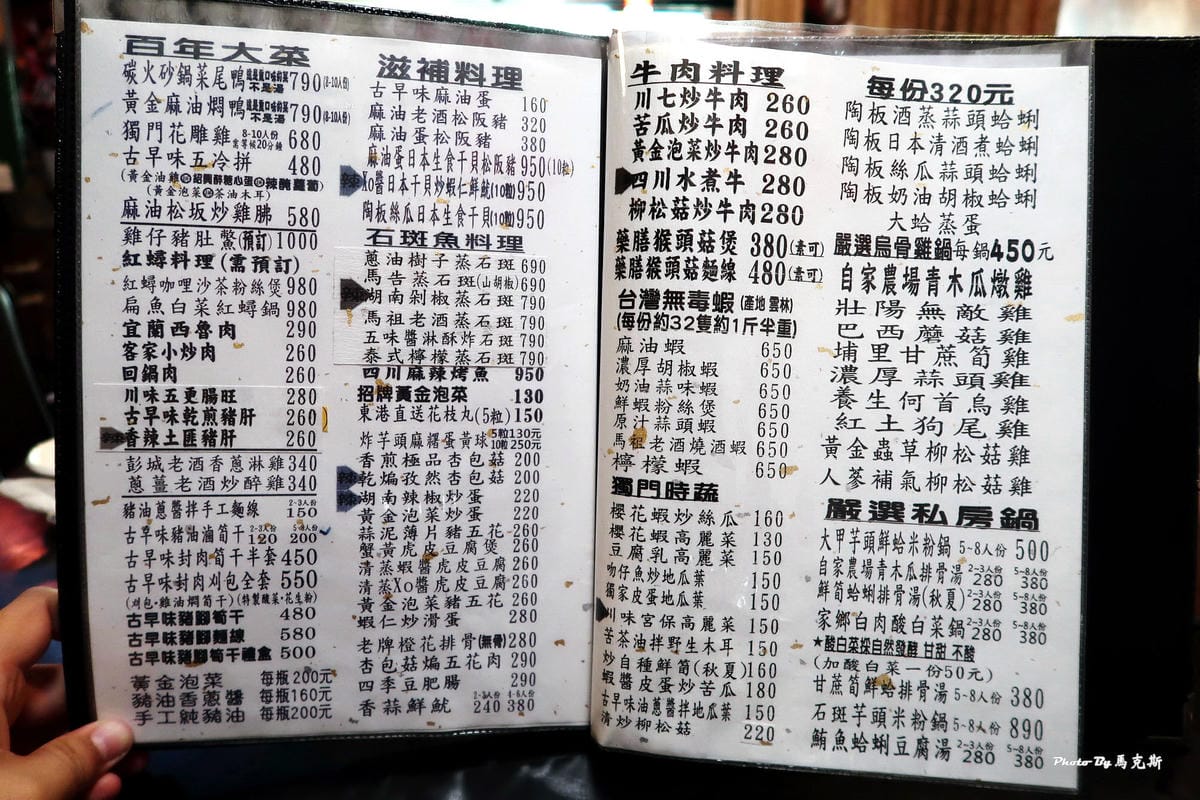 百年大菜
碳火砂鍋菜尾鴨 不是湯 790(8-10人份)
黃金麻油燜鴨 不是湯 790(8-10人份)
獨門花雕雞 8-10人份 需等候20分鐘 680
古早味五冷拼 480
(黃金油雞 紹興醉糖心蛋 辣脆蘿蔔)
(黃金泡菜 茶油木耳)
麻油松坂炒雞胇 580
雞仔豬肚鱉(預訂)1000
紅蟳料理(需預訂)
紅蟳咖哩沙茶粉絲煲 980
扁魚白菜紅蟳鍋 980
宜蘭西魯肉 290
客家小炒肉 260
回鍋肉 260
川味五更腸旺 280
古早味乾煎豬肝 260
辣 香辣土匪豬肝 260
彭城老酒香蔥淋雞 340
蔥薑老酒炒醉雞 340
豬油蔥醬拌手工麵線 2-3人份 150
古早味豬油滷筍干 2-3人份 120 5-8人份 200
古早味封肉筍干半套 450
古早味封肉刈包全套 550
(刈包·雞油燜筍干)(特製酸菜·花生粉)
古早味豬腳筍干 480
古早味豬腳麵線 580
古早味豬腳筍干禮盒 500
黃金泡菜 每瓶200元
豬油香蔥醬 每瓶160元
手工純豬油 每瓶200元
滋補料理
古早味麻油蛋 160
麻油老酒松阪豬 320
麻油蛋松阪豬 380
麻油蛋日本生食干貝松阪豬 950(10粒)
辣 Xo醬日本干貝炒蝦仁鮮魷(10粒)950
陶板絲瓜日本生食干貝(10粒)950
石斑魚料理
蔥油樹子蒸石斑 690
馬告蒸石斑(山胡椒) 690
辣 湖南剁椒蒸石斑 790
馬祖老酒蒸石斑 790
五味醬淋酥炸石斑 790
泰式檸檬蒸石斑 790
四川麻辣烤魚 950
招牌黃金泡菜 130
東港直送花枝丸(5粒)150
炸芋頭麻糬蛋黃球 5粒130元 10粒250元
香煎極品杏包菇 200
辣 乾煸孜然杏包菇 200
辣 湖南辣椒炒蛋 220
黃金泡菜炒蛋 220
蒜泥薄片豬五花 260
蟹黃虎皮豆腐煲 260
清蒸蝦醬虎皮豆腐 260
清蒸Xo醬虎皮豆腐 260
黃金泡菜豬五花 260
蝦仁炒滑蛋 280
老牌橙花排骨(無骨)280
杏包菇煸五花肉 290
四季豆肥腸 290
香蒜鮮魷 2-3人份 240 4-6人份 380
牛肉料理
川七炒牛肉 260
苦瓜炒牛肉 260
黃金泡菜炒牛肉 280
四川水煮牛 280
柳松菇炒牛肉 280
藥膳猴頭菇煲 380(素可)
藥膳猴頭菇麵線 480(素可)
台灣無毒蝦(產地 雲林)
(每份約32隻約1斤半重)
麻油蝦 650
濃厚胡椒蝦 650
奶油蒜味蝦 650
鮮蝦粉絲煲 650
原汁蒜頭蝦 650
馬祖老酒燒酒蝦 650
檸檬蝦 650
獨門時蔬
櫻花蝦炒絲瓜 160
櫻花蝦高麗菜 130
豆腐乳高麗菜 150
吻仔魚炒地瓜葉 150
獨家皮蛋地瓜葉 150
川味宮保高麗菜 150
苦茶油拌野生木耳 150
炒自種鮮筍(秋夏)160
蝦醬皮蛋炒苦瓜 180
古早味油蔥醬拌地瓜葉 150
清炒柳松菇 220
每份320元
陶板酒蒸蒜頭蛤蜊
陶板日本清酒煮蛤蜊
陶板絲瓜蒜頭蛤蜊
陶板奶油胡椒蛤蜊
大蛤蒸蛋
嚴選烏骨雞鍋每鍋450元
自家農場青木瓜燉雞
壯陽無敵雞
巴西蘑菇雞
埔里甘蔗筍雞
濃厚蒜頭雞
養生何首烏雞
紅土狗尾雞
黃金蟲草柳松菇雞
人蔘補氣柳松菇雞
嚴選私房鍋
大甲芋頭鮮蛤米粉鍋 5-8人份 500
自家農場青木瓜排骨湯 2-3人份 280 5-8人份 380
鮮筍蛤蜊排骨湯(秋夏) 2-3人份 280 5-8人份 380
家鄉白肉酸白菜鍋 2-3人份 280 5-8人份 380
★酸白菜採自然發酵 甘甜 不酸
(加酸白菜一份50元)
甘蔗筍鮮蛤排骨湯 5-8人份 380
石斑芋頭米粉鍋 5-8人份 890
鮪魚蛤蜊豆腐湯 2-3人份 280 5-8人份 380
Photo By 馬克斯